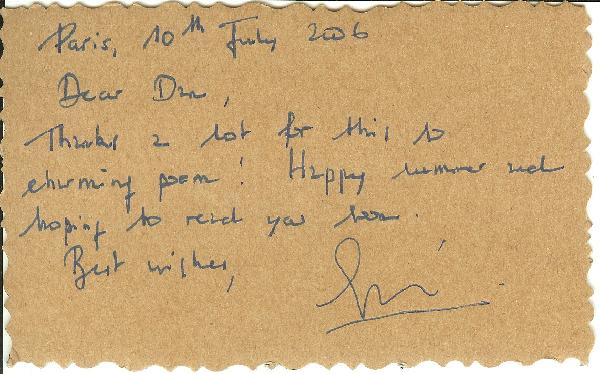 Paris, 10th July 2006
Dear Dan,
Thanks a lot for this so
charming poem! Happy summer and
hoping to read you soon.
Best wishes,